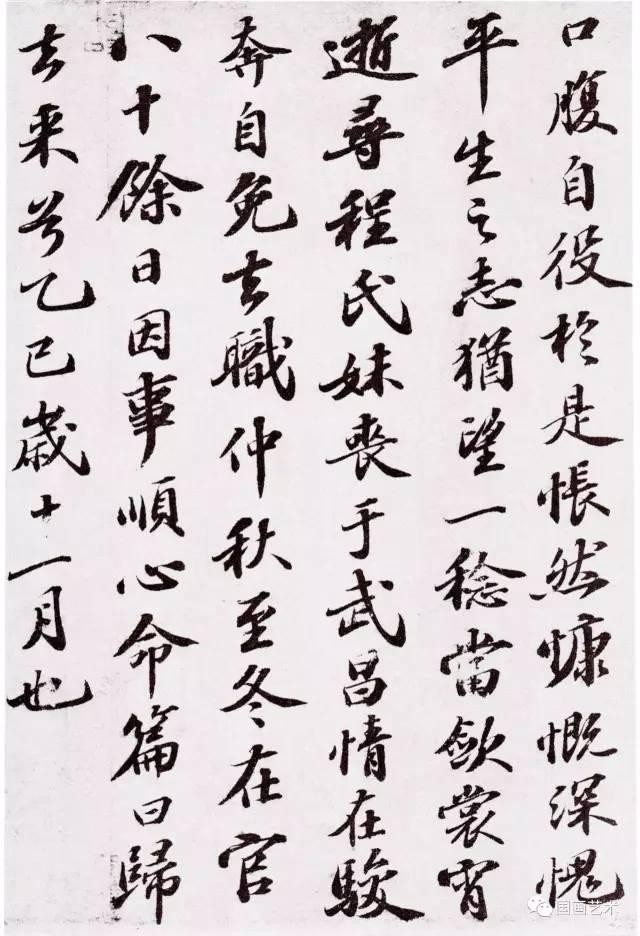 口腹自役於是悵然慷慨深愧
平生之志猶望一稔當斂裳宵
逝尋程氏妹喪于武昌情在駿
奔自免去職仲秋至冬在官
八十餘日因事順心命篇曰歸
去来兮乙巳歲十一月也
国画艺术